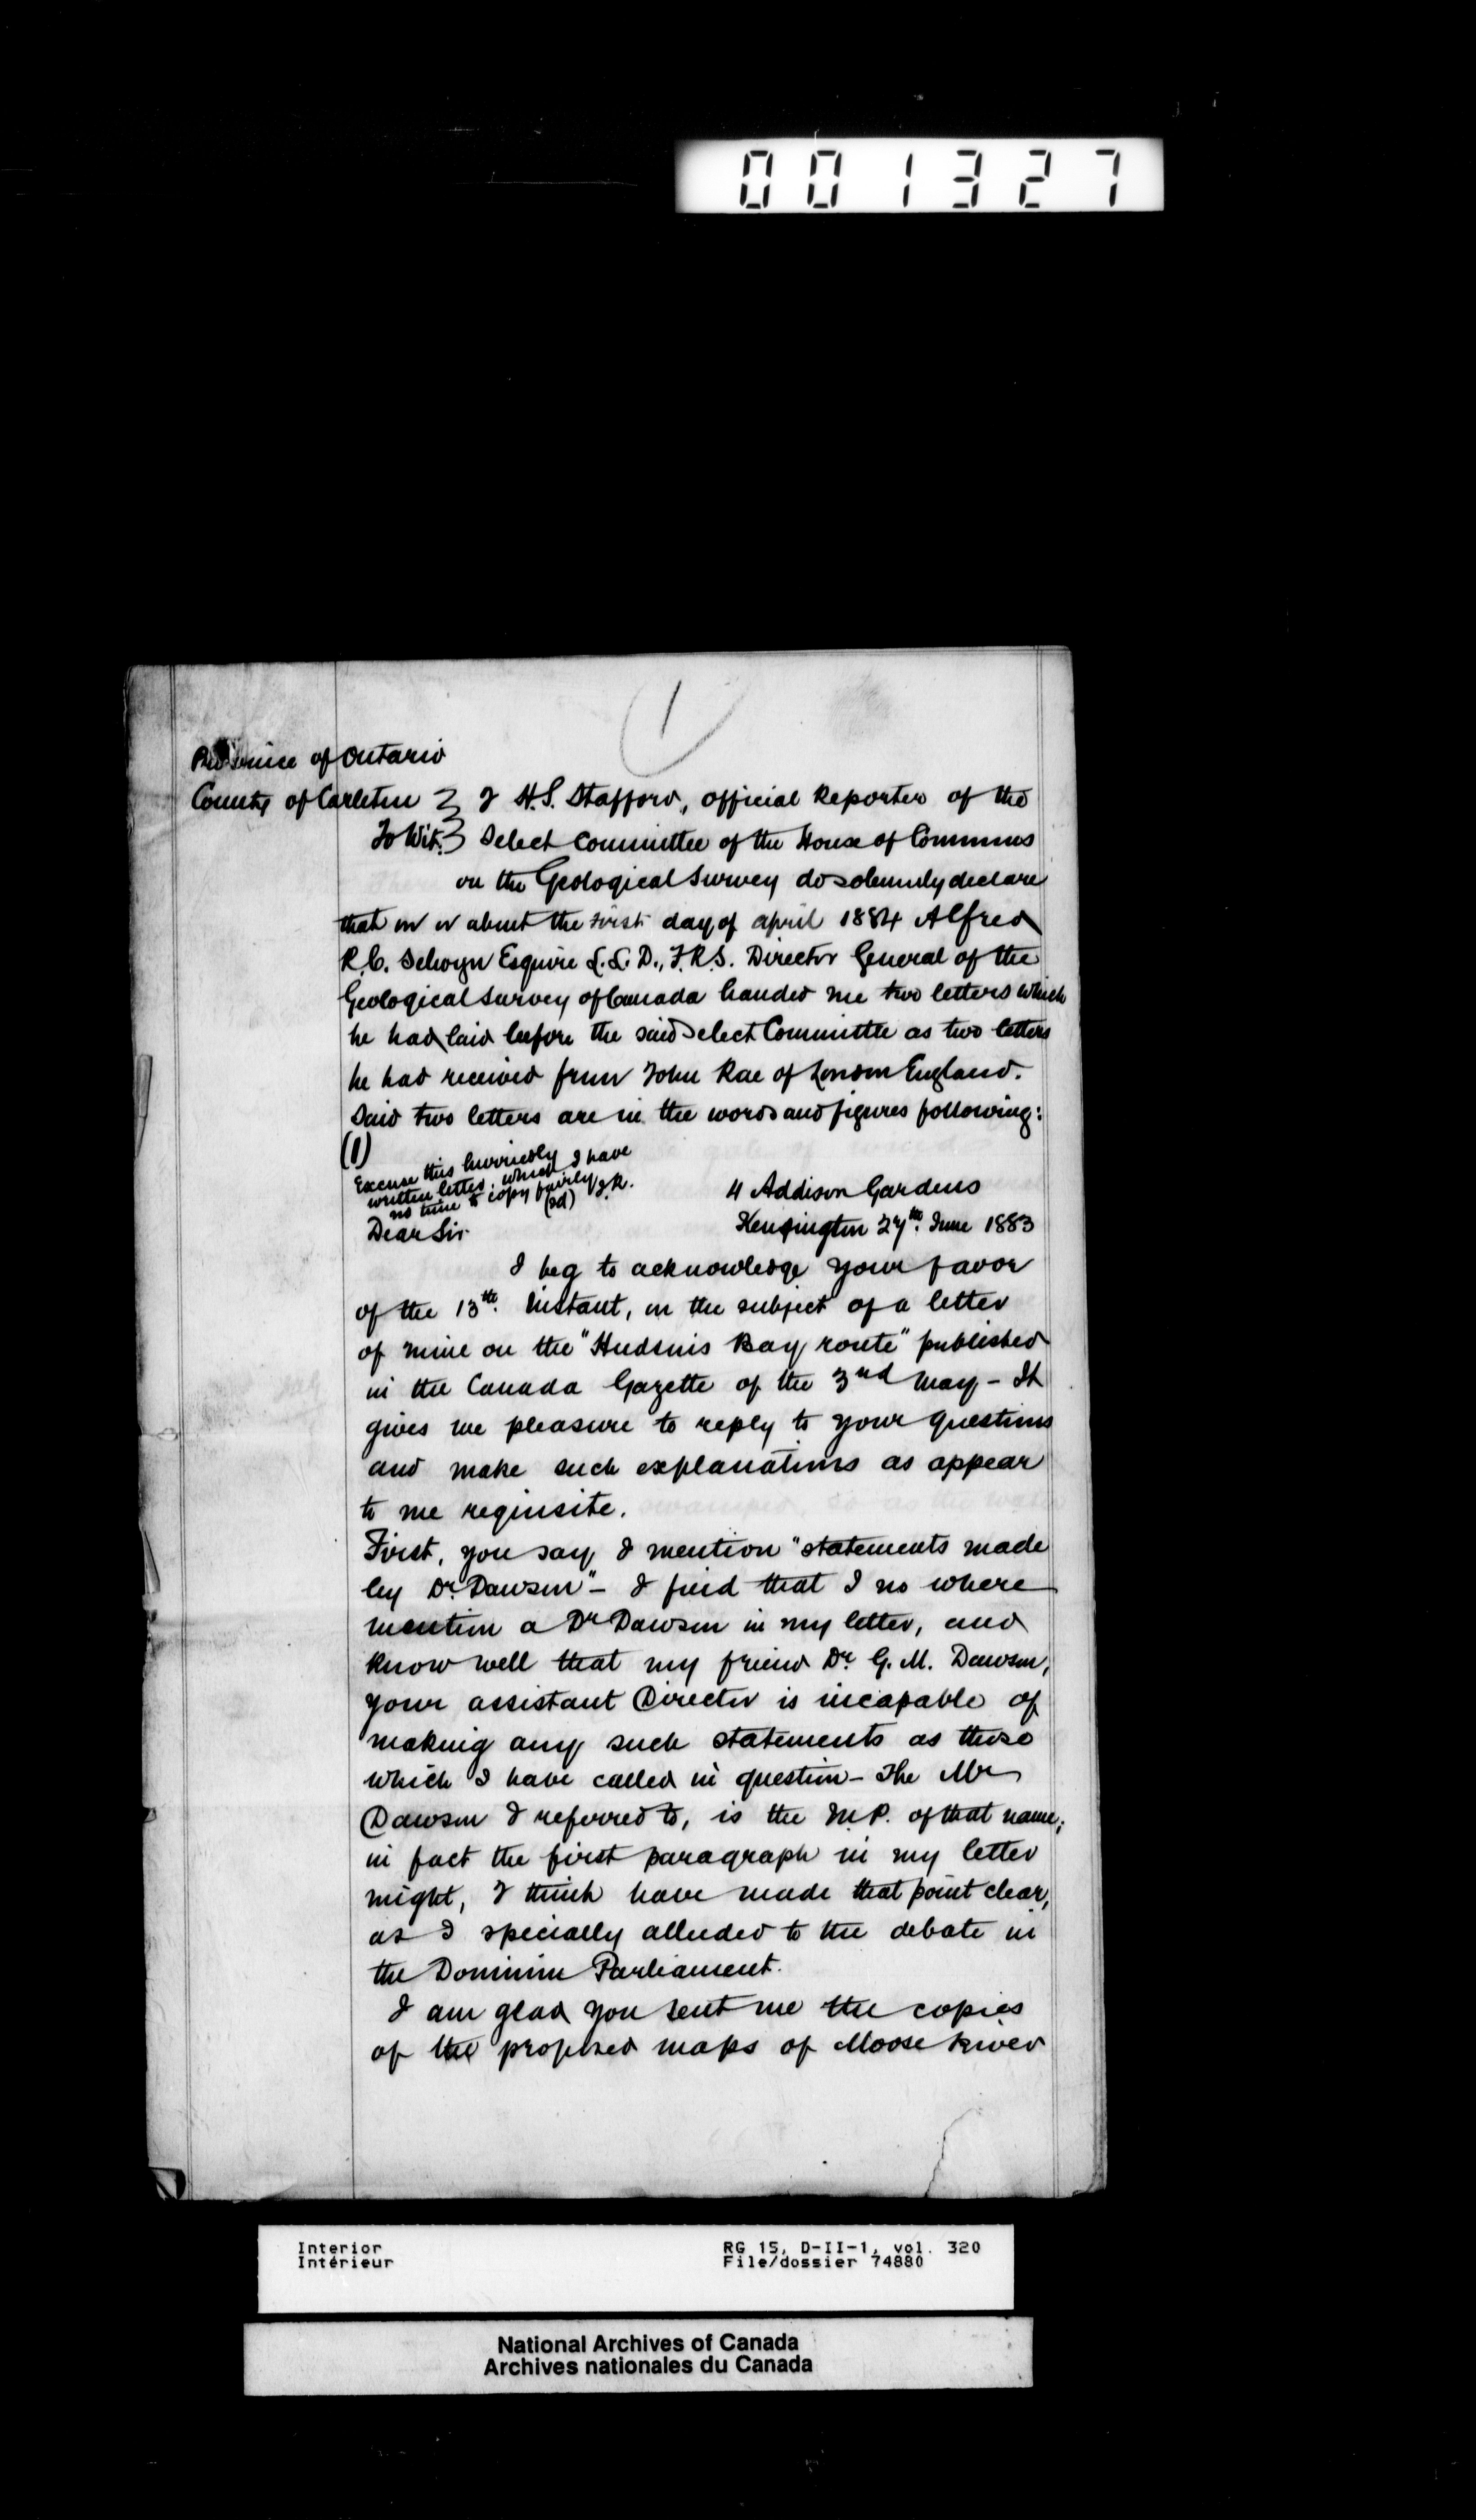 001327
1
Province of Ontario
County of Carleton } I H.S. Stafford, official Reporter of the
To Wit. } Select Committee of the House of Commons
on the Geological Survey do solemnly declare
that on or about the first day of April 1884 Alfred
R.C. Selwyn Esquire L.L.D., F.R.S. Director General of the
Geological Survey of Canada handed me two letters which
he had laid before the said Select Committee as two letters
he had received from John Rae of London England.
Said two letters are in the words and figures following:
(1)
Excuse this hurriedly
written letter, which I have
no time to copy fairly J.R.
(sd)
4 Addison Gardens
Kensington 27th. June 1883
Dear Sir
I beg to acknowledge your favor
of the 13th. Instant, on the subject of a letter
of mine on the "Hudsons Bay route" published
in the Canada Gazette of the 3nd May - It
gives me pleasure to reply to your questions
and make such explanations as appear
to me requisite.
First, you say I mention "statements made
by Dr. Dawson" - I find that I no where
mention a Dr Dawson in my letter, and
know well that my friend Dr. G. M. Dawson,
your assistant Director is incapable of
making any such statements as those
which I have called in question - The Mr
Dawson I referred to, is the M.P. of that name;
in fact the first paragraph in my letter
might, I think have made that point clear,
as I specially alluded to the debate in
the Dominion Parliament.
I am glad you sent me the copies
of the proposed maps of Moose River
Interior
Intérieur
RG 15, D-II-1, vol. 320
File/dossier 74880
National Archives of Canada
Archives nationales du Canada